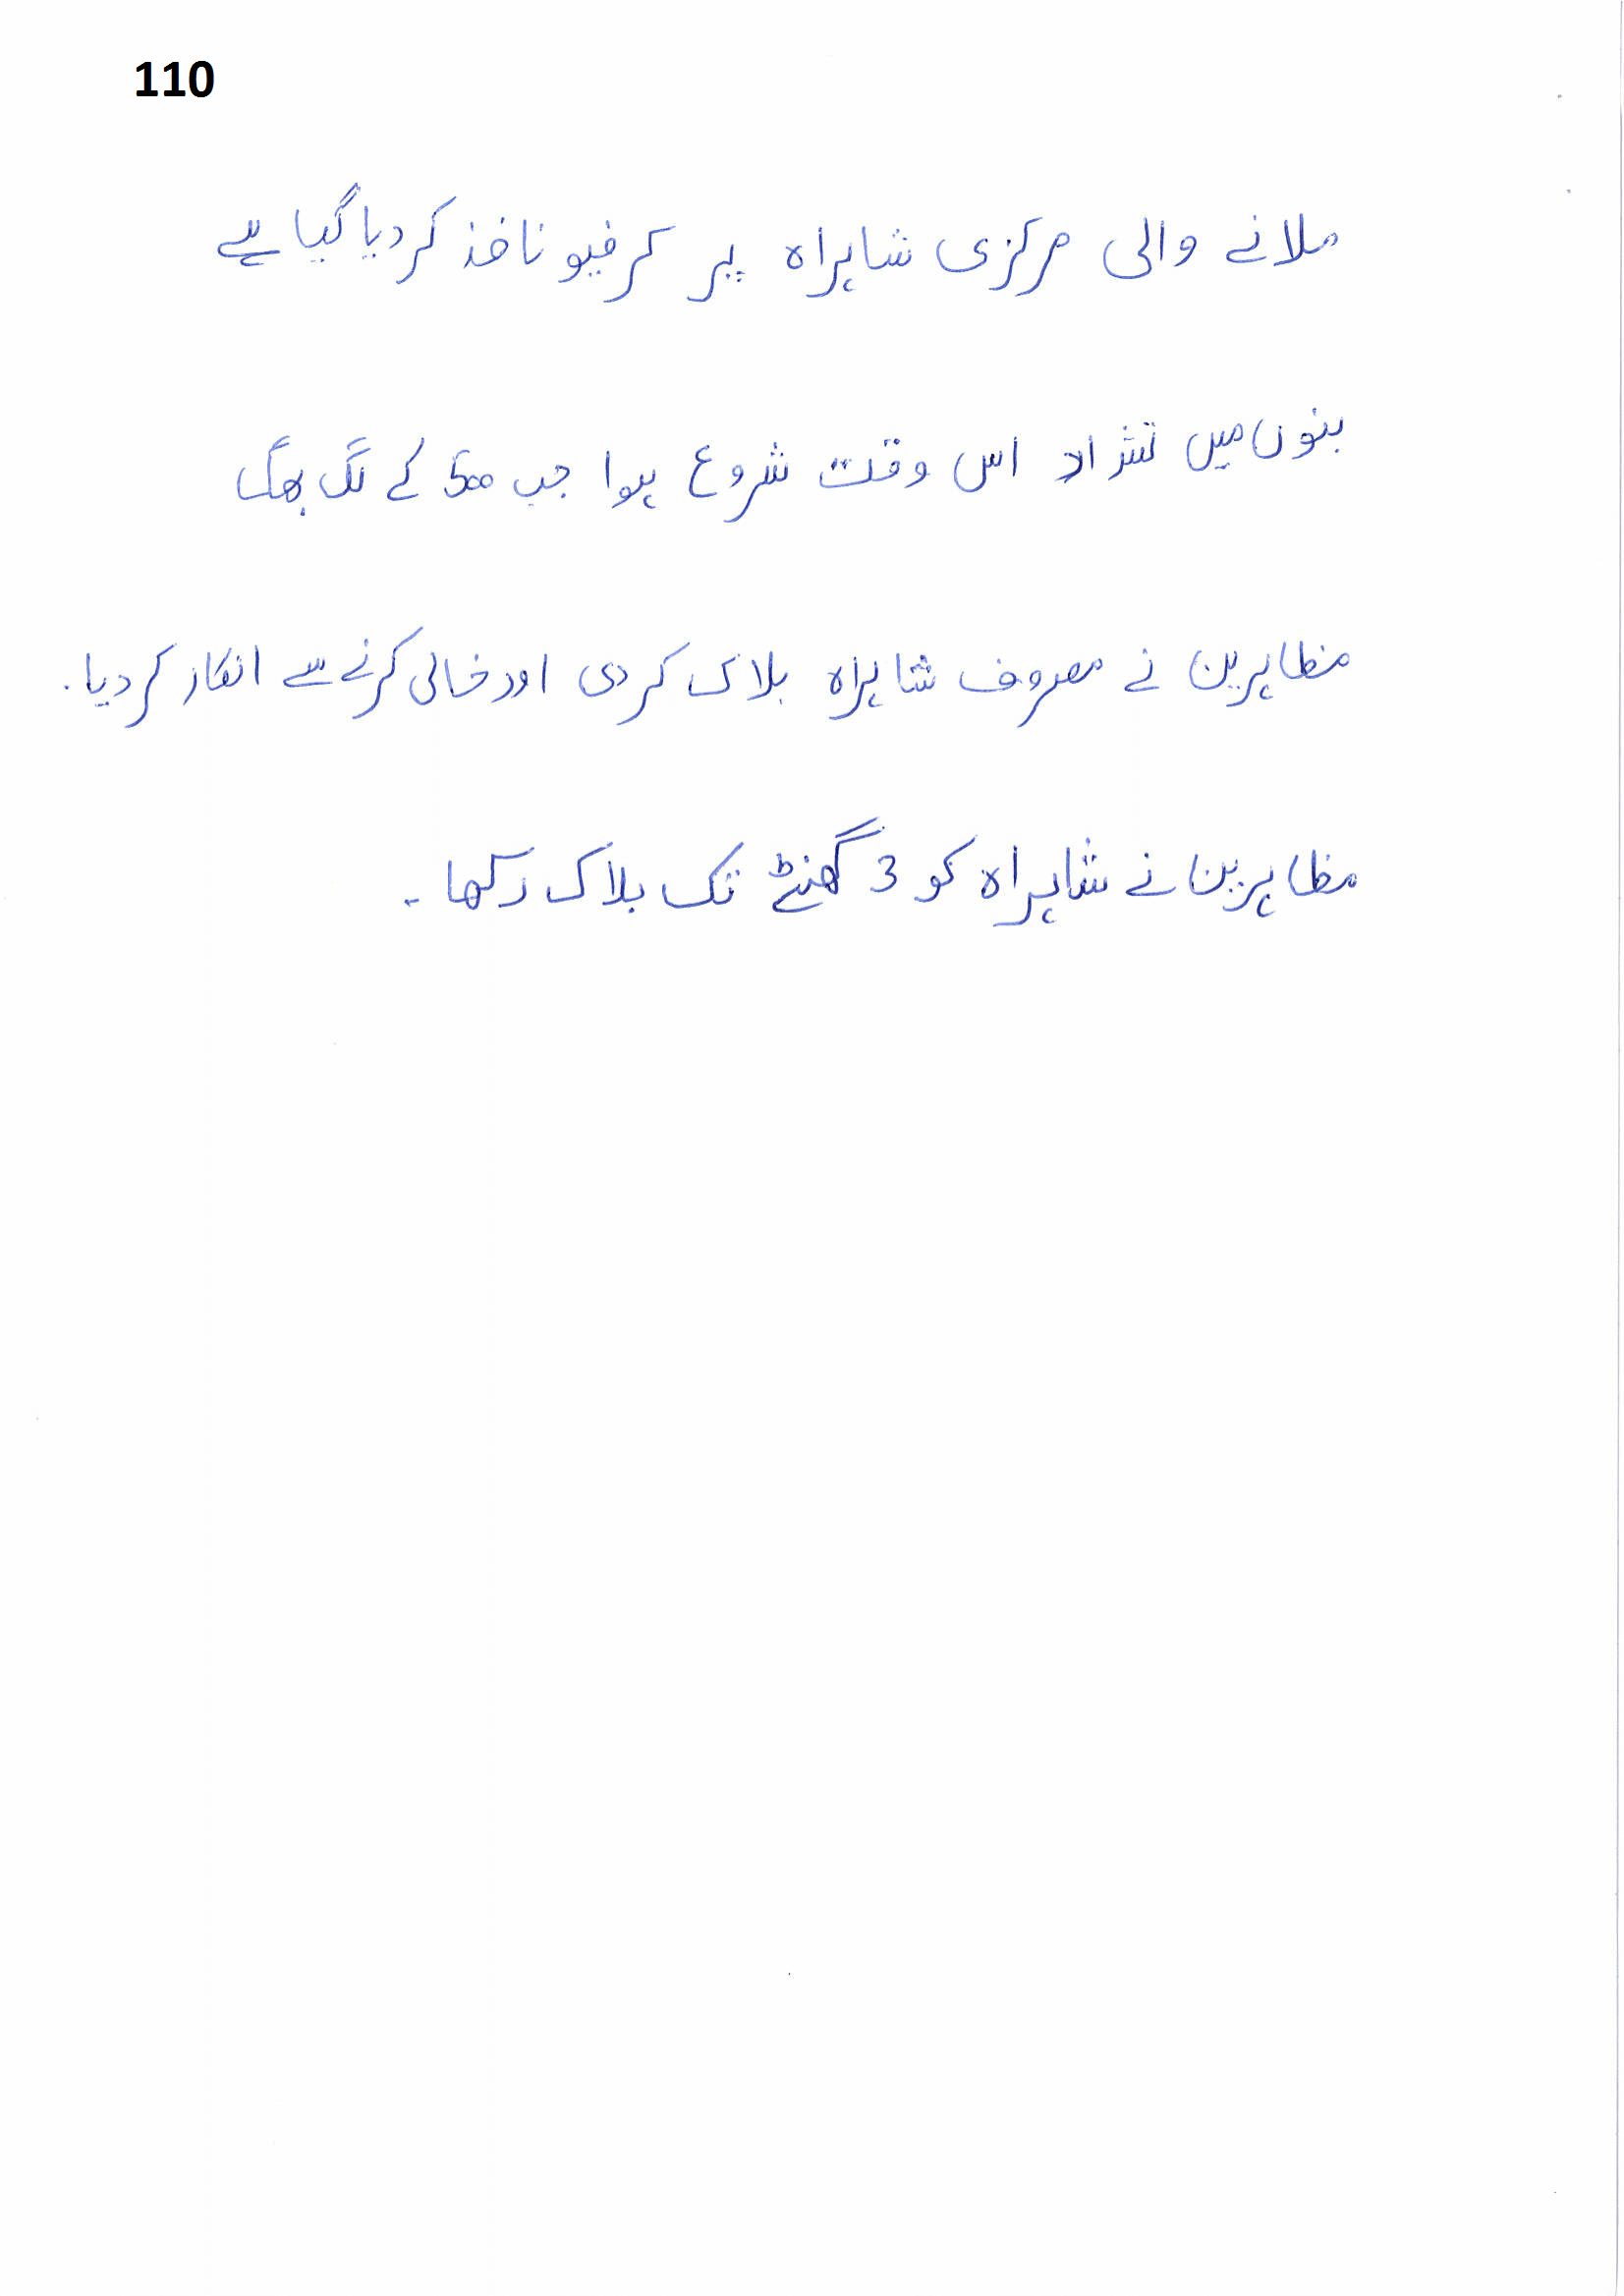 110
ملانے والی مرکزی شاہراہ پر کرفیو نافذ کر دیا گیا ہے
بنوں میں تشدد اس وقت شروع ہوا جب 500 کے لگ بھگ
مظاہرین نے مصروف شاہراہ بلاک کر دی اور خالی کرنے سے انکار کر دیا۔
مظاہرین نے شاہراہ کو 3 گھنٹے تک بلاک رکھا۔